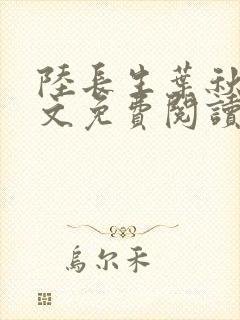 陸長生葉秋
文免費閱讀
烏尔禾